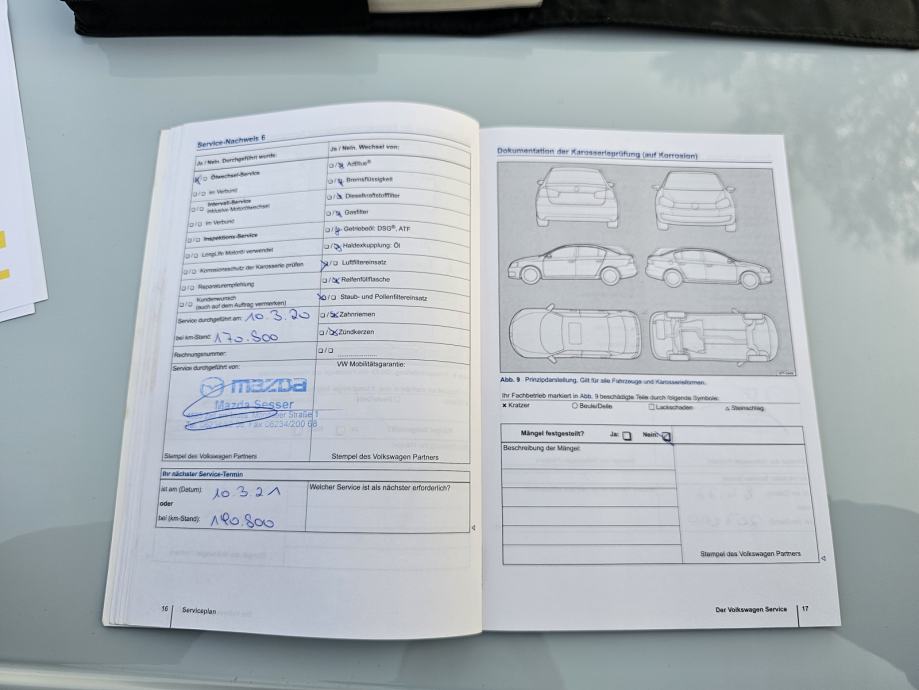 Service-Nachweis 6
Ja / Nein. Durchgeführt wurde:
Ölwechsel-Service
im Verbund
Intervall-Service
inklusive Motorölwechsel
im Verbund
Inspektions-Service
LongLife Motoröl verwendet
Korrosionsschutz der Karosserie prüfen
Reparaturempfehlung
Kundenwunsch
(auch auf dem Auftrag vermerken)
Service durchgeführt am: 10.3.20
bei km-Stand: 170.800
Rechnungsnummer:
Service durchgeführt von:
mazda
Mazda Sesser
Straße 1
Fax 08234/200 68
Stempel des Volkswagen Partners
Ja / Nein. Wechsel von:
AdBlue®
Bremsflüssigkeit
Dieselkraftstofffilter
Gasfilter
Getriebeöl: DSG®, ATF
Haldexkupplung: Öl
Luftfiltereinsatz
Reifenfüllflasche
Staub- und Pollenfiltereinsatz
Zahnriemen
Zündkerzen
VW Mobilitätsgarantie:
Stempel des Volkswagen Partners
Ihr nächster Service-Termin
ist am (Datum): 10.3.21
oder
bei (km-Stand): 190.800
Welcher Service ist als nächster erforderlich?
16 Serviceplan
Dokumentation der Karosserieprüfung (auf Korrosion)
Abb. 9 Prinzipdarstellung. Gilt für alle Fahrzeuge und Karosserieformen.
Ihr Fachbetrieb markiert in Abb. 9 beschädigte Teile durch folgende Symbole:
x Kratzer ○ Beule/Delle □ Lackschaden △ Steinschlag
Mängel festgestellt? Ja: Nein:
Beschreibung der Mängel:
Stempel des Volkswagen Partners
Der Volkswagen Service 17